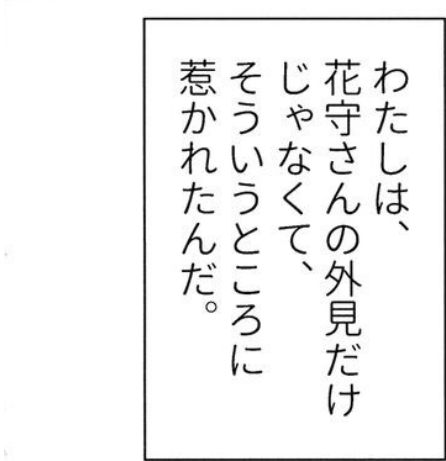 わたしは、
花守さんの外見だけ
じゃなくて、
そういうところに
惹かれたんだ。